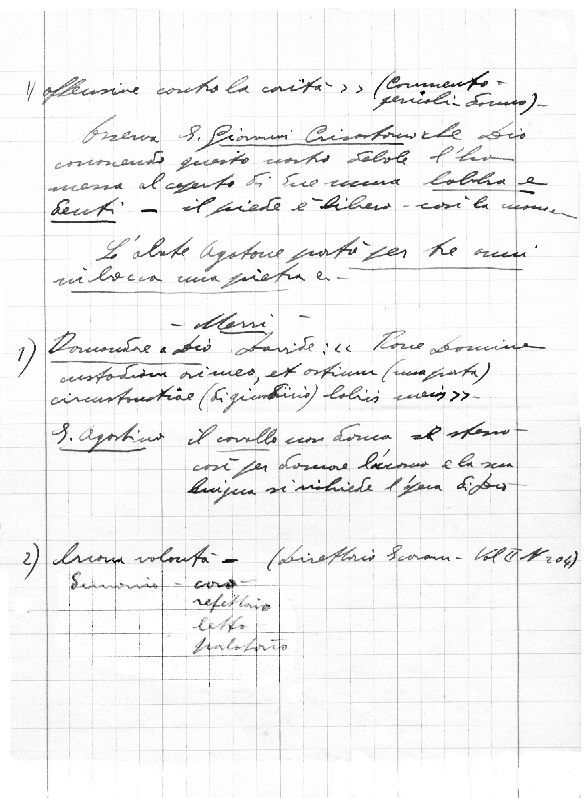 offensive contro la carità >> (Commento -
pericoli - danno) -
Osserva S. Giovanni Crisostomo che Dio
conoscendo questo nostro debole l'ha
messa al coperto di due mura labbra e
denti - il piede è libero - così la mano -
L'abate Agatone portò per tre anni
in bocca una pietra e -
- Mezzi -
1) Domandare a Dio Davide: << Pone Domine
custodiam ori meo, et ostium (una porta)
circumstantiae (di giudizio) labiis meis >> -
S. Agostino il cavallo non doma sé stesso -
così per domare l'uomo e la sua
lingua si richiede l'opera di Dio
2) buona volontà - (Direttorio Vol II N 204)
coro -
refettorio
letto
parlatorio